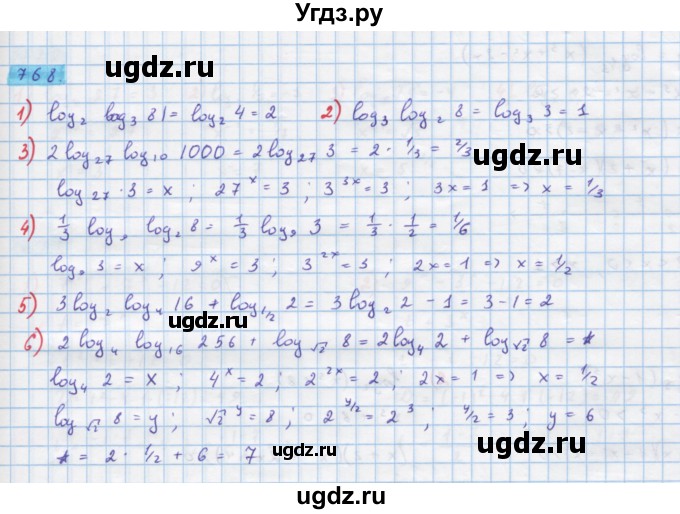 Угдз.ру
768.
ugdz.ru
ugdz.ru
1) log₂ log₃ 81 = log₂ 4 = 2 2) log₃ log₂ 8 = log₃ 3 = 1
3) 2 log₂₇ log₁₀ 1000 = 2 log₂₇ 3 = 2 · 1/3 = 2/3
ugdz.ru
log₂₇ · 3 = x ; 27ˣ = 3 ; 3³ˣ = 3 ; 3x = 1 => x = 1/3
4) 1/3 log₉ log₂ 8 = 1/3 log₉ 3 = 1/3 · 1/2 = 1/6
log₉ 3 = x ; 9ˣ = 3 ; 3²ˣ = 3 ; 2x = 1 => x = 1/2
5) 3 log₂ log₄ 16 + log₁/₂ 2 = 3 log₂ 2 - 1 = 3 - 1 = 2
ugdz.ru
6) 2 log₄ log₁₆ 256 + log√₂ 8 = 2 log₄ 2 + log√₂ 8 = *
log₄ 2 = x ; 4ˣ = 2 ; 2²ˣ = 2 ; 2x = 1 => x = 1/2
log√₂ 8 = y ; √2ʸ = 8 ; 2^y/2 = 2³ ; y/2 = 3 ; y = 6
* = 2 · 1/2 + 6 = 7
ugdz.ru
ugdz.ru
ugdz.ru